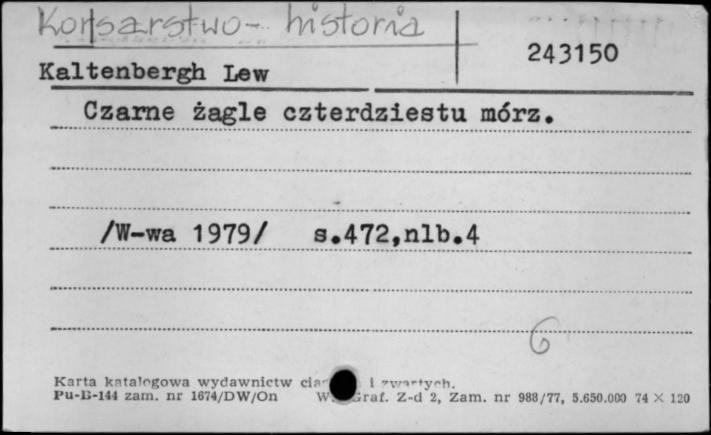 Korsarstwo - historia
243150
Kaltenbergh Lew
Czarne żagle czterdziestu mórz.
/W-wa 1979/ s.472,nlb.4
6
Karta katalogowa wydawnictw i zwartych.
Pu-B-144 zam. nr 1674/DW/On Graf. Z-d 2, Zam. nr 988/77, 5.650.000 74 × 120